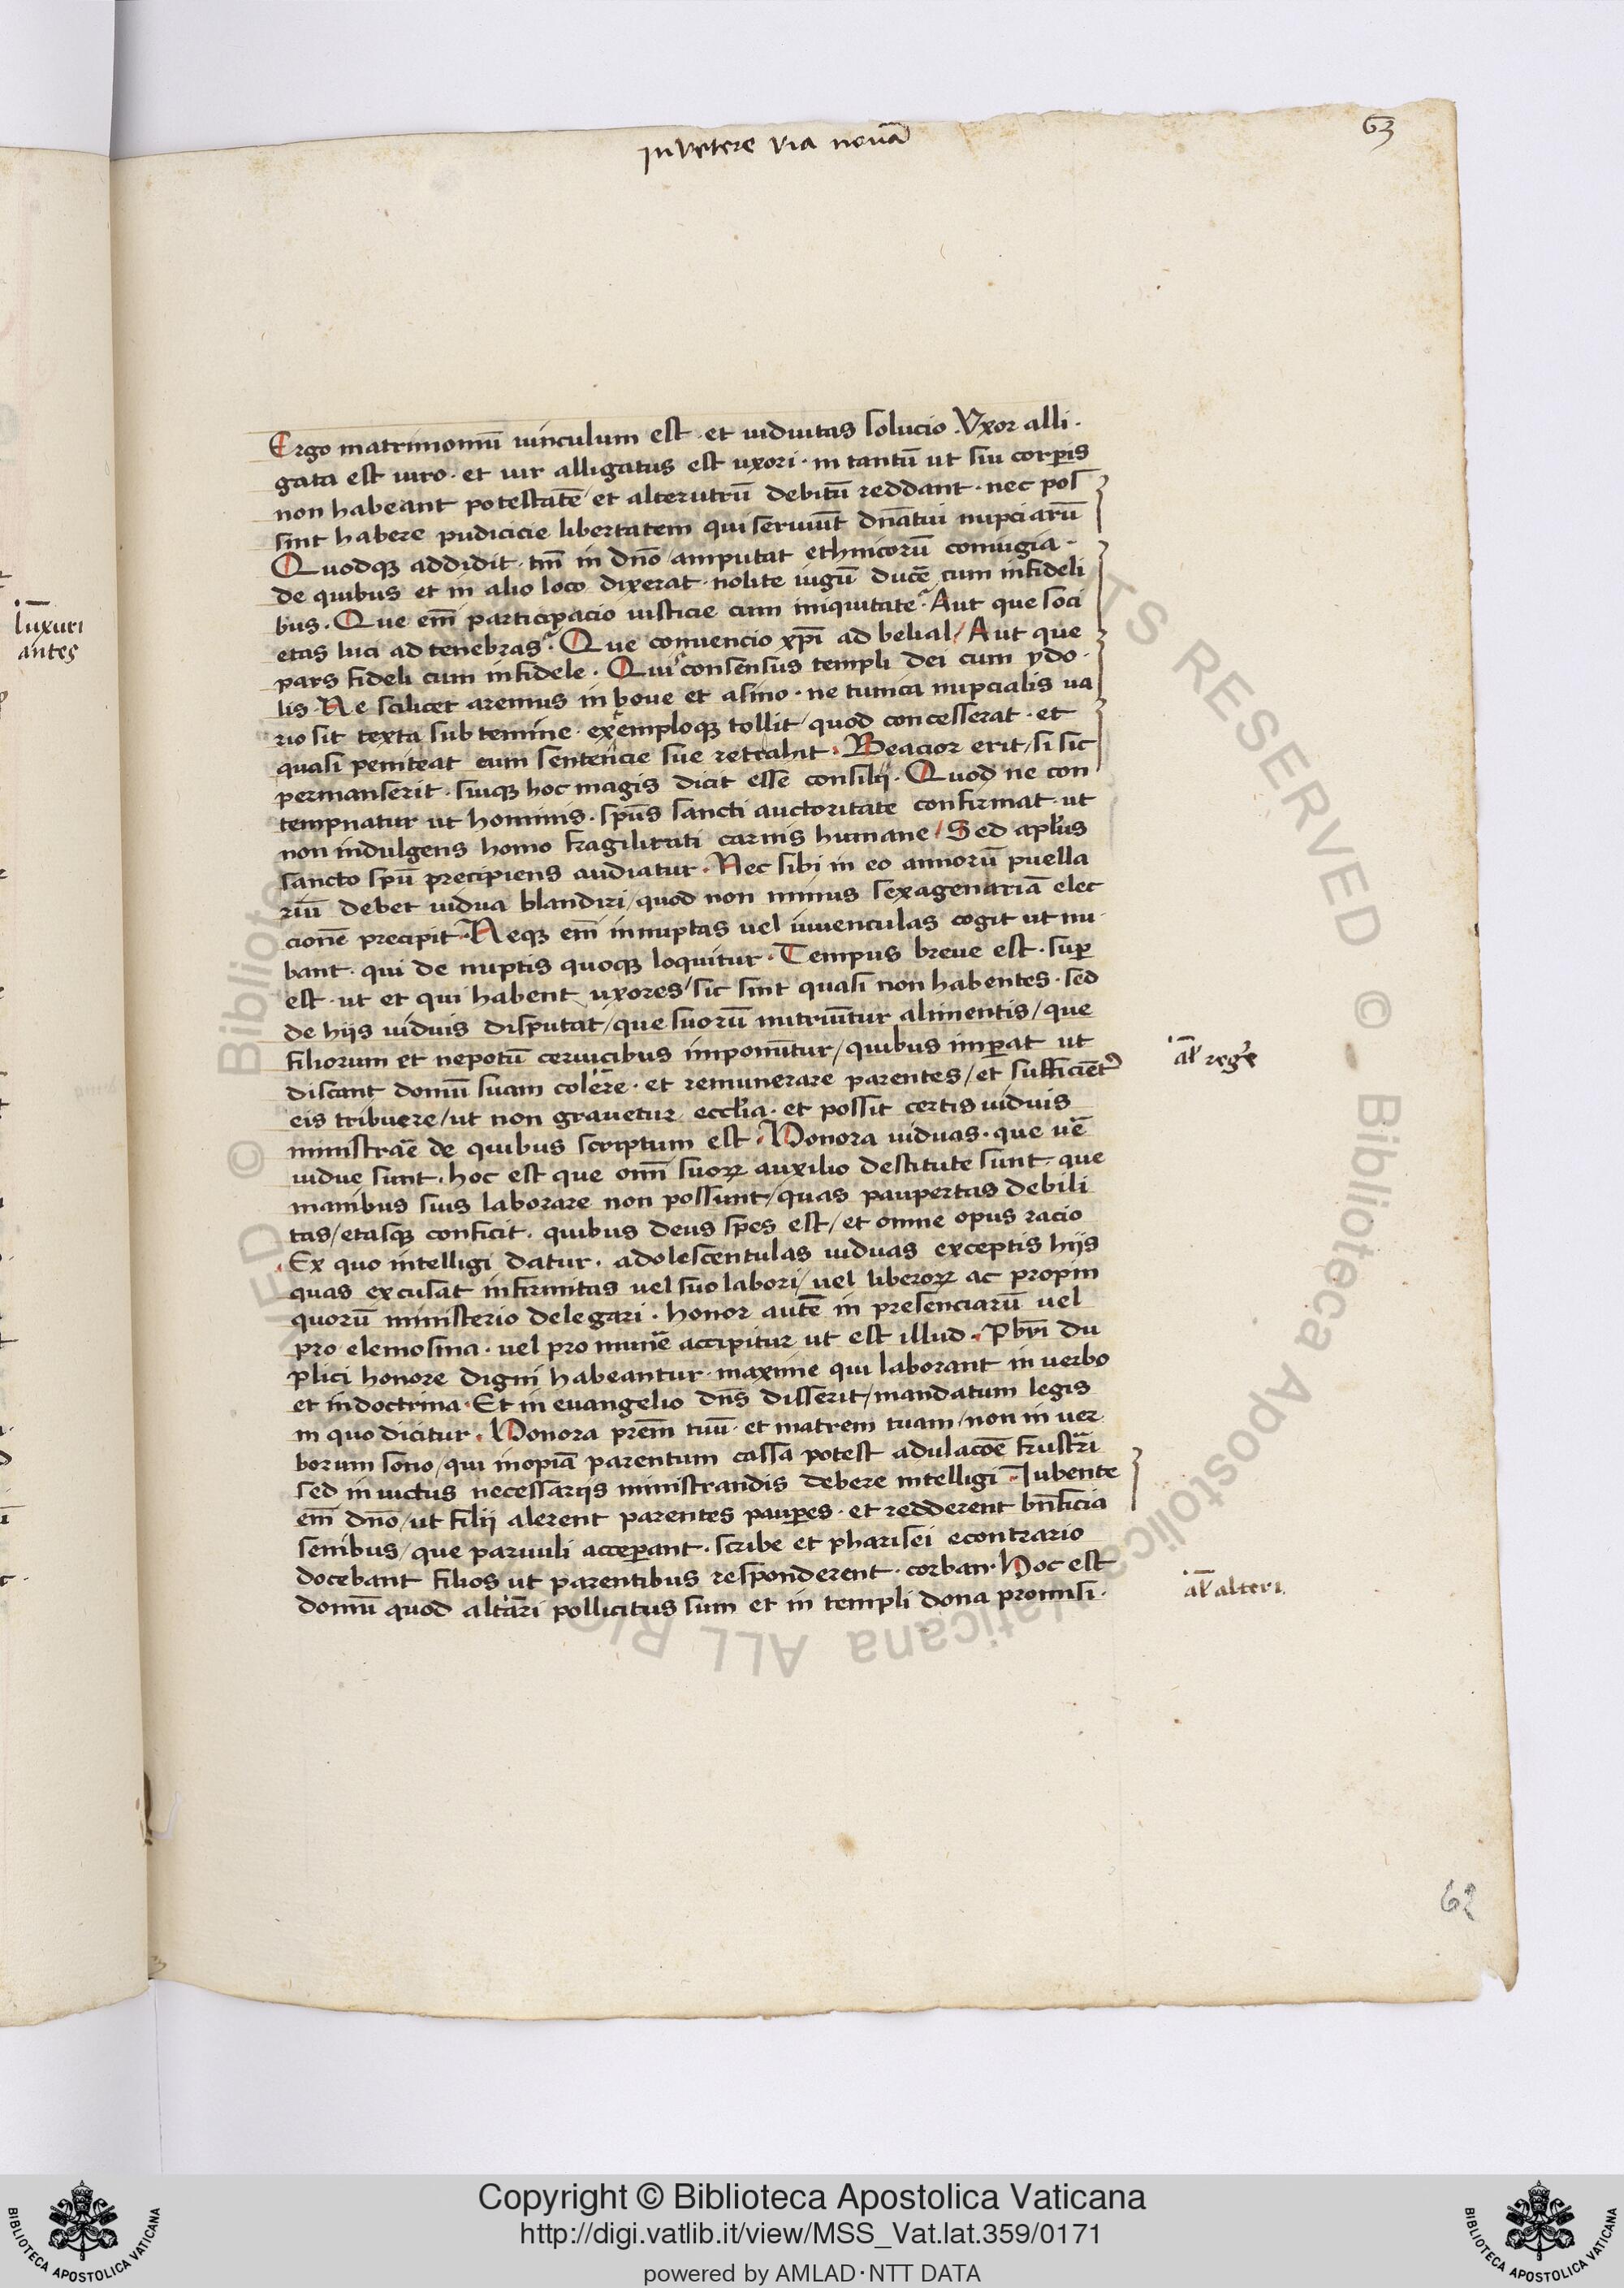 in vetere via novã
63
Ergo matrimoniũ uinculum est · et uiduitas solucio · Vxor alli ·
gata est uiro · et uir alligatus est uxori · in tantũ ut sui corꝑis
non habeant potestatẽ et alterutrũ debitũ reddant · nec pos
sint habere pudicicie libertatem qui seruiũt dñatui nupciarũ
Quodqꝫ addidit · tm̃ in dño / amputat ethnicorũ coniugia ·
de quibus et in alio loco dixerat · nolite iugũ ducẽ cum infideli
bus · Que em̃ participacio iusticie cum iniquitate · Aut que soci
etas luci ad tenebras · Que conuencio xp̃i ad belial / Aut que
pars fideli cum infidele · Qui consensus templi dei cum ydo ·
lis · Ne scilicet aremus in boue et asino · ne tunica nupcialis ua
rio sit texta subtemine · exemploqꝫ tollit / quod concesserat · et
quasi peniteat eum sentencie sue retrahit · Beacior erit / si sic
permanserit · suiqꝫ hoc magis dicit esse consilij · Quod ne con
tempnatur ut hominis · sp̃us sancti auctoritate confirmat · ut
non indulgens homo fragilitati carnis humane / Sed apl̃us
sancto sp̃u precipiens audiatur · Nec sibi in eo annorũ puella
riũ debet uidua blandiri / quod non minus sexagenariã elec
cionẽ precipit · Neqꝫ em̃ innuptas uel iuuenculas cogit ut nu ·
bant · qui de nuptis quoqꝫ loquitur · Tempus breue est · suꝑ
est · ut et qui habent uxores / sic sint quasi non habentes · sed
de hijs uiduis disputat / que suorũ nutriũtur alimentis / que
filiorum et nepotũ ceruicibus imponũtur / quibus imꝑat ut
discant domũ suam colere · et remunerare parentes / et sufficient᷑
eis tribuere / ut non grauetur eccl̃ia · et possit certis uiduis
ministrar̃e de quibus scriptum est · Honora uiduas · que uẽ
uidue sunt · hoc est que om̃i suoꝝ auxilio destitute sunt · que
manibus suis laborare non possunt / quas paupertas debili
tas / etasqꝫ conficit · quibus deus spes est / et omne opus racio
Ex quo intelligi datur · adolescentulas uiduas exceptis hijs
quas excusat infirmitas uel suo labori / uel liberoꝝ ac propin
quorũ ministerio delegari · honor autẽ in presenciarũ uel
pro elemosina · uel pro munẽ accipitur ut est illud · Pbr̃i du
plici honore digni habeantur · maxime qui laborant in uerbo
et in doctrina · Et in euangelio dñs disserit / mandatum legis
in quo dicitur · Honora prẽm tuũ · et matrem tuam / non in uer
borum sono / qui inopiã parentum cassa potest adulacõe frustrãri
sed in uictus necessarijs ministrandis debere intelligi · Iubente
em̃ dño / ut filij alerent parentes pauꝑes · et redderent bñficia
senibus / que paruuli acceꝑant · scribe et pharisei econtrario
docebant filios ut parentibus responderent · corban · Hoc est
domũ quod altãri pollicitus sum et in templi dona promisi ·
luxuri
antes
al̃ regẽ
al̃ alteri
62
© Biblioteca Apostolica Vaticana ALL RIGHTS RESERVED
Copyright © Biblioteca Apostolica Vaticana
http://digi.vatlib.it/view/MSS_Vat.lat.359/0171
powered by AMLAD·NTT DATA
BIBLIOTECA APOSTOLICA VATICANA
BIBLIOTECA APOSTOLICA VATICANA